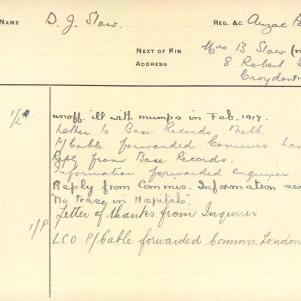 NAME D. J. Slaw. REG. &C. Anzac
NEXT OF KIN Mrs B Slaw
ADDRESS 8. Robert
Croydon
unoff ill with mumps in Feb. 1917.
Letter to Base Records Melb.
P/Cable forwarded Commrs
Reply from Base Records.
Information forwarded enquirer.
Reply from Commrs. Information
"No trace in Hospitals".
Letter of thanks from Inquirer
1/P LCO P/Cable forwarded Commrs. London